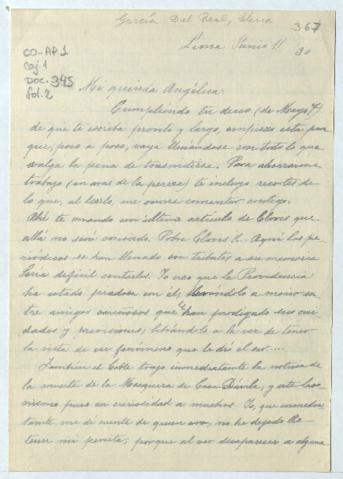 García Del Real, Elena
367
CO-AP1
Caj. 1
Doc. 345
fol. 2
Lima Junio 11/30
Mi querida Angélica:
Cumpliendo tu deseo (de Mayo 7)
de que te escriba pronto y largo, empiezo esta, para
que, poco a poco, vaya llenándose con todo lo que
valga la pena de trasmitirse. Para ahorrarme
trabajo (en aras de la pereza) te incluyo recortes de
lo que, al leerlo, me ocurre comentar contigo.
Ahí te mando un último artículo de Clovis que
allá no será conocido. Pobre Clovis!.. Aquí los pe-
riódicos se han llenado con tributos a su memoria
Sería difícil contarlos. Yo veo que la Providencia
ha estado piadosa con él, llevándolo a morir en-
tre amigos cariñosos que le han prodigado sus cui-
dados y previsiones; librándolo a la vez de tener
la vida de ese fenómeno que le dió el ser....
También el Cable trajo inmediatamente la noticia de
la muerte de la Mosquera de Casa Dávila, y este
puso en curiosidad a muchos. Yo, que inmedia-
tamente me dí cuenta de quien era, no he dejado de
tener mi penita; porque al ver desaparecer a alguna